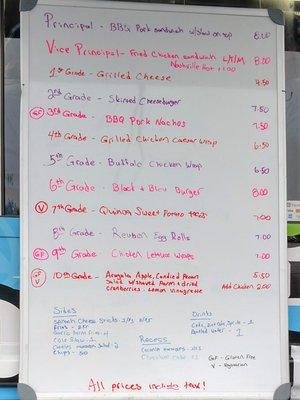 Principal - BBQ Pork sandwich w/slaw on top 8.00
Vice Principal - Fried Chicken sandwich L/T/M 8.00
Nashville Hot + 1.00
1st Grade - Grilled Cheese 4.50
2nd Grade - Skinned Cheeseburger 7.50
GF 3rd Grade - BBQ Pork Nachos 7.50
4th Grade - Grilled Chicken Caesar Wrap 6.50
5th Grade - Buffalo Chicken Wrap 6.50
6th Grade - Black & Bleu Burger 8.00
V 7th Grade - Quinoa Sweet Potato Tacos 7.00
8th Grade - Reuben Egg Rolls 7.00
GF 9th Grade - Chicken Lettuce Wraps 7.00
GF V 10th Grade - Arugula, Apple, Candied Pecan 5.50
Salad w/ Shaved Parm & dried
Cranberries - Lemon Vinaigrette Add Chicken 2.00
Sides
Cheese Sticks
Fries -
Parm Fries -
Cole Slaw -
Salad -
Chips - .50
Recess
Drinks
Coke, Sprite - 1
Bottled Water - 1
GF - Gluten Free
V - Vegetarian
All prices include tax!